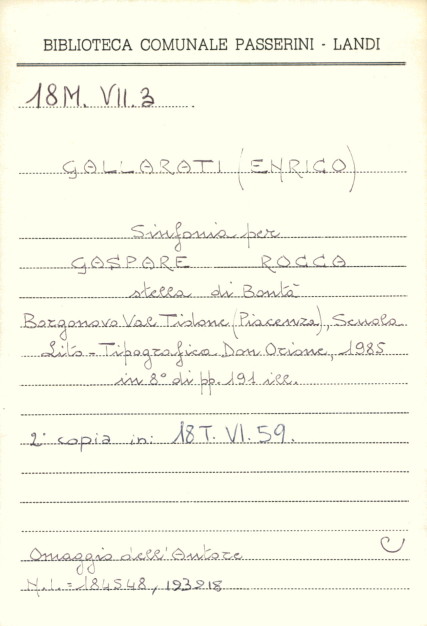 BIBLIOTECA COMUNALE PASSERINI - LANDI
18M. VII.3
GALLARATI (ENRICO)
Sinfonia per
GASPARE ROCCA
stella di Bontà
Borgonovo Val Tidone (Piacenza), Scuola
Lito-Tipografica Don Orione, 1985
in 8° di pp. 191 ill.
2ª copia in: 18T. VI. 59.
Omaggio dell'Autore
N.I. = 184548, 193218